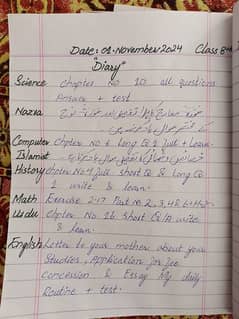 Date: 01. November 2024 Class 8th
"Diary"
Science Chapter No 10 all questions
Answer + test
Nazra
Computer Chpter No 6 long Q 1 Just + Learn.
Islamiat
History Chpter No 9 Just short Q & Long Q
1 write & learn.
Math Exercise 2.17 Part no 2, 3,
Urdu Chpter No 16 Short Q/A write
& learn.
English Letter to your mother about your
Studies, Application for fee
Concession & Essay My daily
Routine + test.